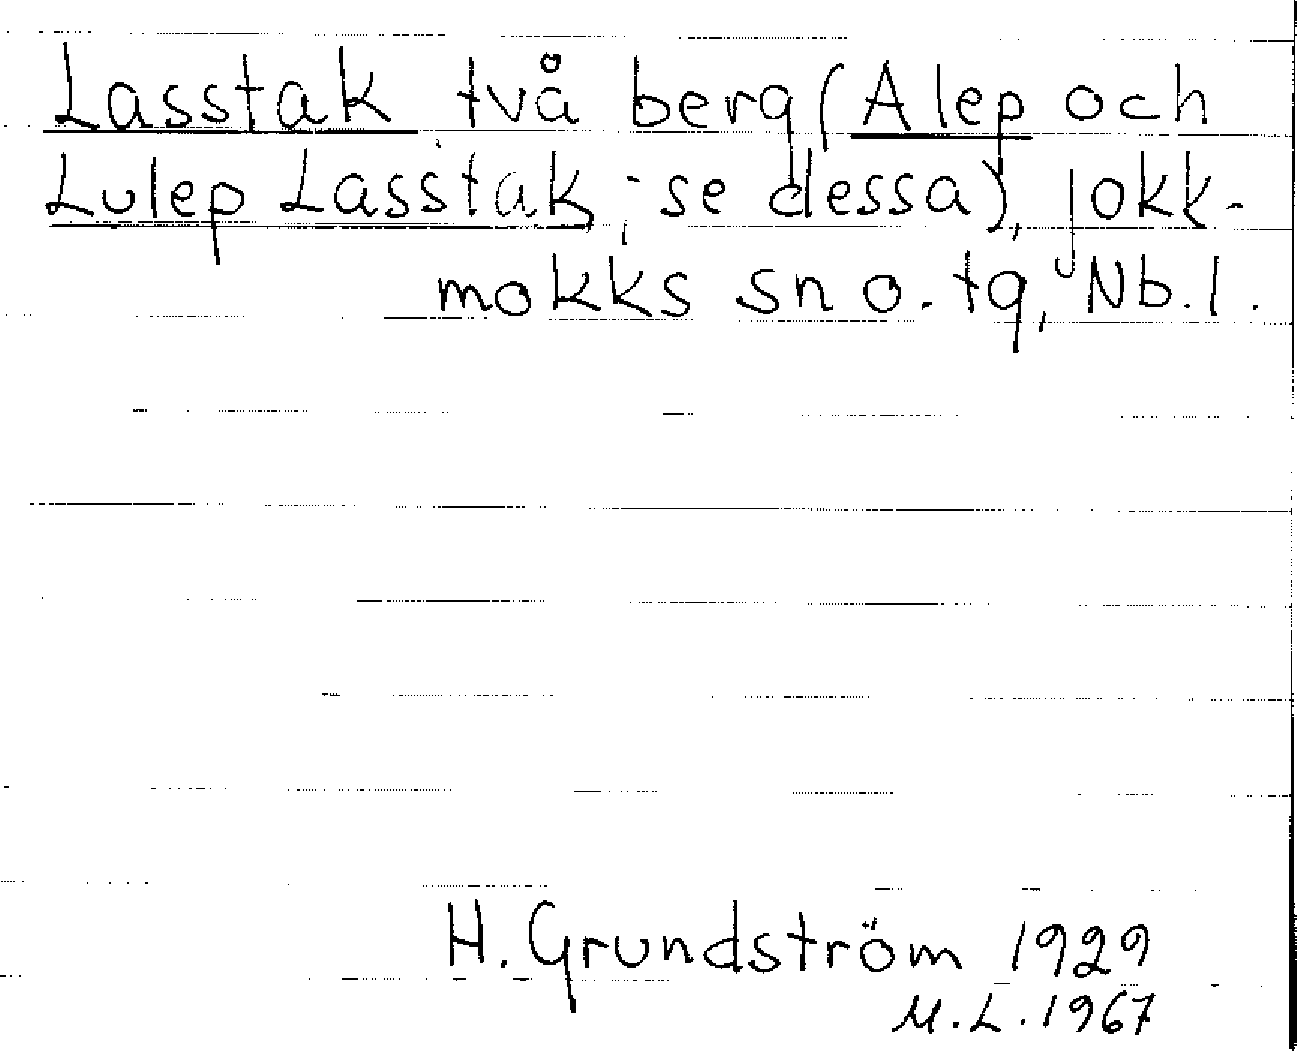 Lasstak två berg (Alep och
Lulep Lasstak, - se dessa), Jokk-
mokks sn o. tg, Nb.l.
H. Grundström 1929
M.L. 1967